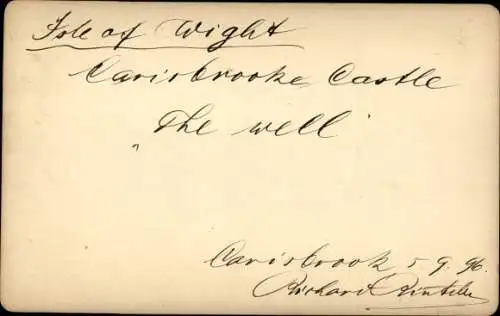 Isle of Wight
Carisbrooke Castle
„The well"
Carisbrook 5 9. 96.
Richard